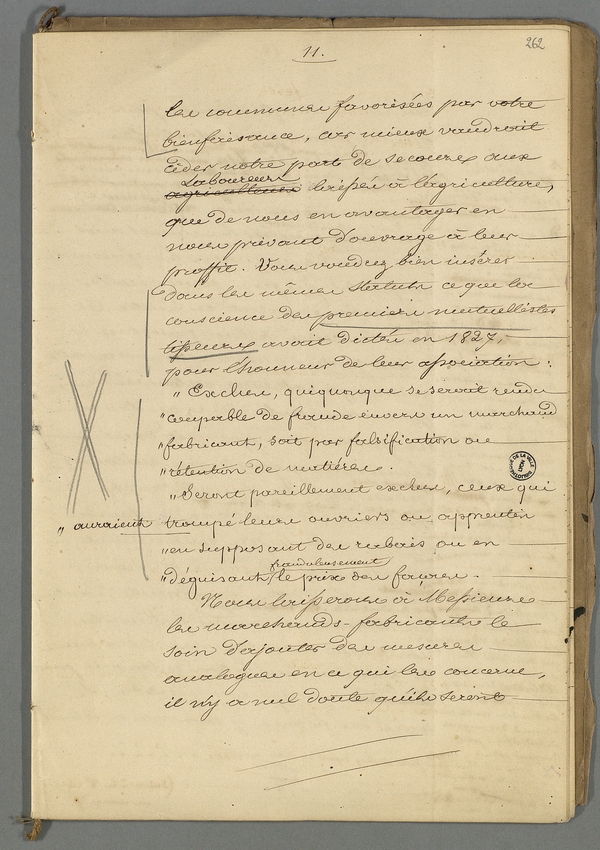 262
11.
les communes favorisées par votre
bienfaisance, car mieux vaudrait
céder notre part de secours aux
Laboureurs
agriculteurs laissée à l'agriculture,
que de nous en avantager en
nous privant d'ouvrage à leur
proffit. Vous voudrez bien insérer
dans les mêmes statuts ce que la
conscience des premiers mutuellistes
tisseurs avait dictée en 1827,
pour l'honneur de leur association :
" Exclure, quiquonque se serait rendu
"coupable de fraude envers un marchand
"fabricant, soit par falsification ou
"rétention de matières.
"Seront pareillement exclus, ceux qui
" auraient trompé leurs ouvriers ou apprentis
"en supposant des rabais ou en
frauduleusement
"déguisant le prix des façons.
Nous laisserons à Messieurs
les marchands-fabricants le
soin d'ajouter des mesures
analogues en ce qui les concerne,
il n'y a nul doute qu'ils seront